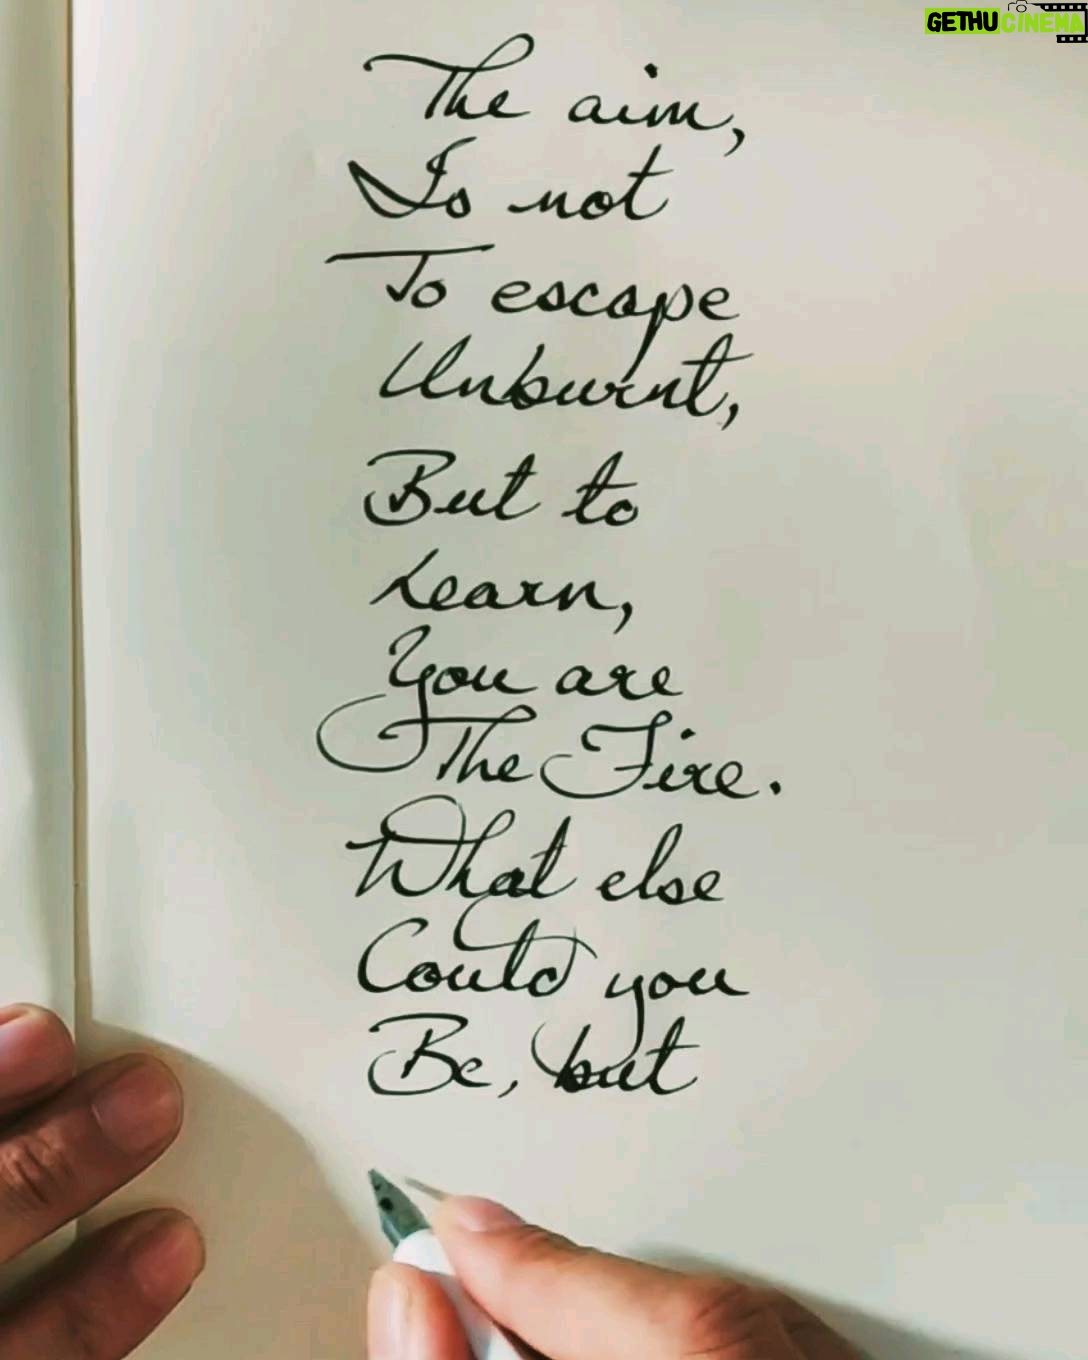 GETHUCINEMA
The aim,
Is not
To escape
Unburnt,
But to
Learn,
You are
The Fire.
What else
Could you
Be, but